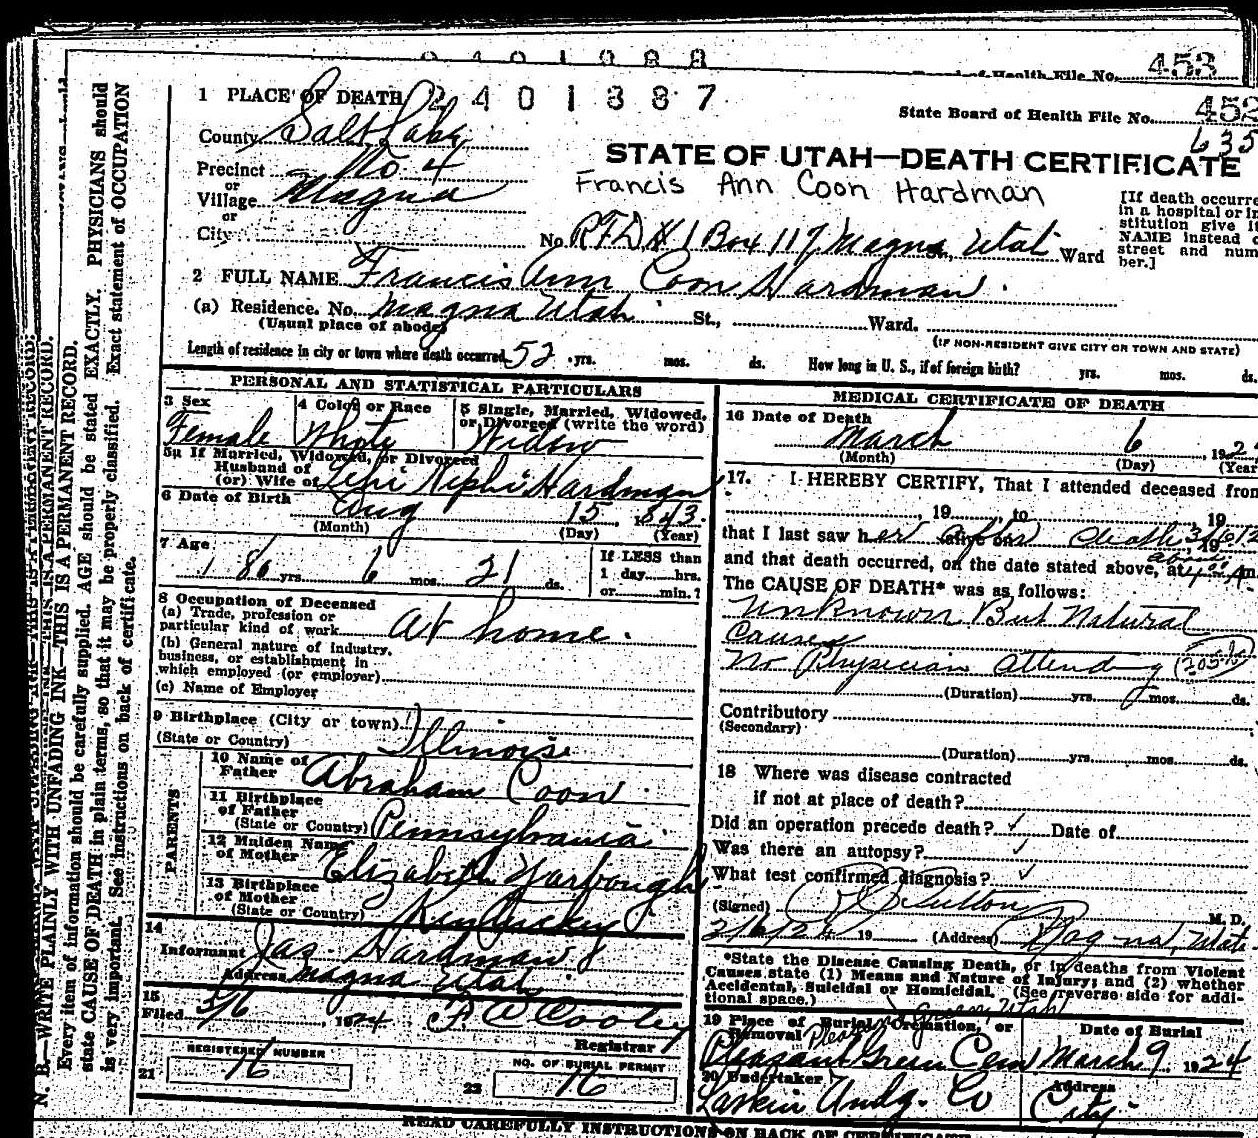 Board of Health File No. 453
1 PLACE OF DEATH 2401387
State Board of Health File No. 452
635
County Salt Lake
STATE OF UTAH—DEATH CERTIFICATE
Precinct No. 4
or
Francis Ann Coon Hardman
Village Magna
or
City
No. RFD #1 Box 117 Magna Utah St., Ward
[If death occurre
in a hospital or in
stitution give it
NAME instead o
street and num
ber.]
2 FULL NAME Francis Ann Coon Hardman
(a) Residence. No. Magna Utah St., Ward.
(Usual place of abode)
(IF NON-RESIDENT GIVE CITY OR TOWN AND STATE)
Length of residence in city or town where death occurred 52 yrs. mos. ds. How long in U. S., if of foreign birth? yrs. mos. ds.
PERSONAL AND STATISTICAL PARTICULARS
3 Sex
Female
4 Color or Race
White
5 Single, Married, Widowed,
or Divorced (write the word)
Widow
5a If Married, Widowed, or Divorced
Husband of
(or) Wife of Lehi Nephi Hardman
6 Date of Birth
Aug 15, 1843
(Month) (Day) (Year)
7 Age
86 yrs. 6 mos. 21 ds.
If LESS than
1 day hrs.
or min.?
8 Occupation of Deceased
(a) Trade, profession or
particular kind of work At home.
(b) General nature of industry,
business, or establishment in
which employed (or employer)
(c) Name of Employer
9 Birthplace (City or town)
(State or Country) Illinoise
PARENTS
10 Name of
Father Abraham Coon
11 Birthplace
of Father
(State or Country) Pennsylvania
12 Maiden Name
of Mother Elizabeth Yarbough
13 Birthplace
of Mother
(State or Country) Kentucky
14
Informant Jas. Hardman
Address Magna Utah
15
Filed 3/6, 1924 F. W. Cooley
Registrar
REGISTERED NUMBER
21 16
NO. OF BURIAL PERMIT
22 16
MEDICAL CERTIFICATE OF DEATH
16 Date of Death
March 6, 192
(Month) (Day) (Year
17. I HEREBY CERTIFY, That I attended deceased from
, 19 , to , 19
that I last saw her after death 3/6/
and that death occurred, on the date stated above, at m.
The CAUSE OF DEATH* was as follows:
Unknown But Natural
Causes
No Physician attending (205)
(Duration) yrs. mos. ds.
Contributory
(Secondary)
(Duration) yrs. mos. ds.
18 Where was disease contracted
if not at place of death?
Did an operation precede death? ✓ Date of
Was there an autopsy? ✓
What test confirmed diagnosis? ✓
(Signed) Sutton M. D.
3/6/24 19 (Address) Magna, Utah
*State the Disease Causing Death, or in deaths from Violent
Causes state (1) Means and Nature of Injury; and (2) whether
Accidental, Suicidal or Homicidal. (See reverse side for addi-
tional space.)
19 Place of Burial, Cremation, or
Removal
Pleasant Green Cem
Date of Burial
March 9 1924
20 Undertaker
Larkin Undg. Co
Address
City
READ CAREFULLY INSTRUCTIONS ON BACK OF CERTIFICATE
N. B.—WRITE PLAINLY WITH UNFADING INK—THIS IS A PERMANENT RECORD.
Every item of information should be carefully supplied. AGE should be stated EXACTLY. PHYSICIANS should
state CAUSE OF DEATH in plain terms, so that it may be properly classified. Exact statement of OCCUPATION
is very important. See instructions on back of certificate.